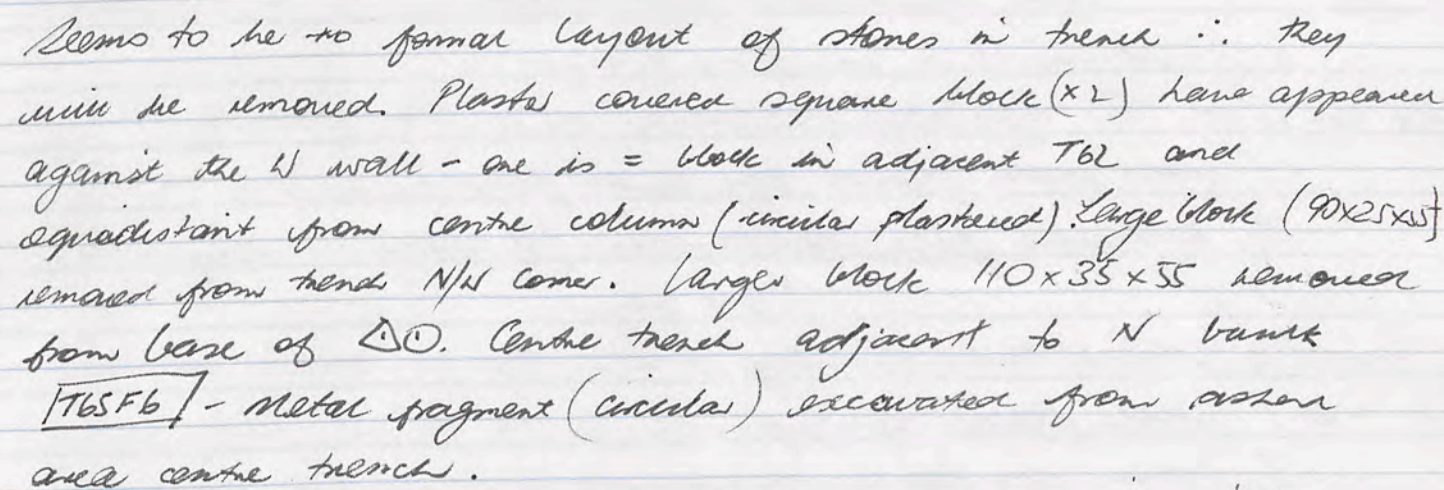 Seems to be no formal layout of stones in trench ∴ they
will be removed. Plaster covered square block (x2) have appeared
against the W wall - one is = block in adjacent T62 and
equadistant from centre column (circular plastered). Large block (90x25x55)
removed from trench N/W corner. Larger block 110x35x55 removed
from base of △⊙. Centre trench adjacent to N baulk
T65F6 - Metal fragment (circular) excavated from ashen
area centre trench.